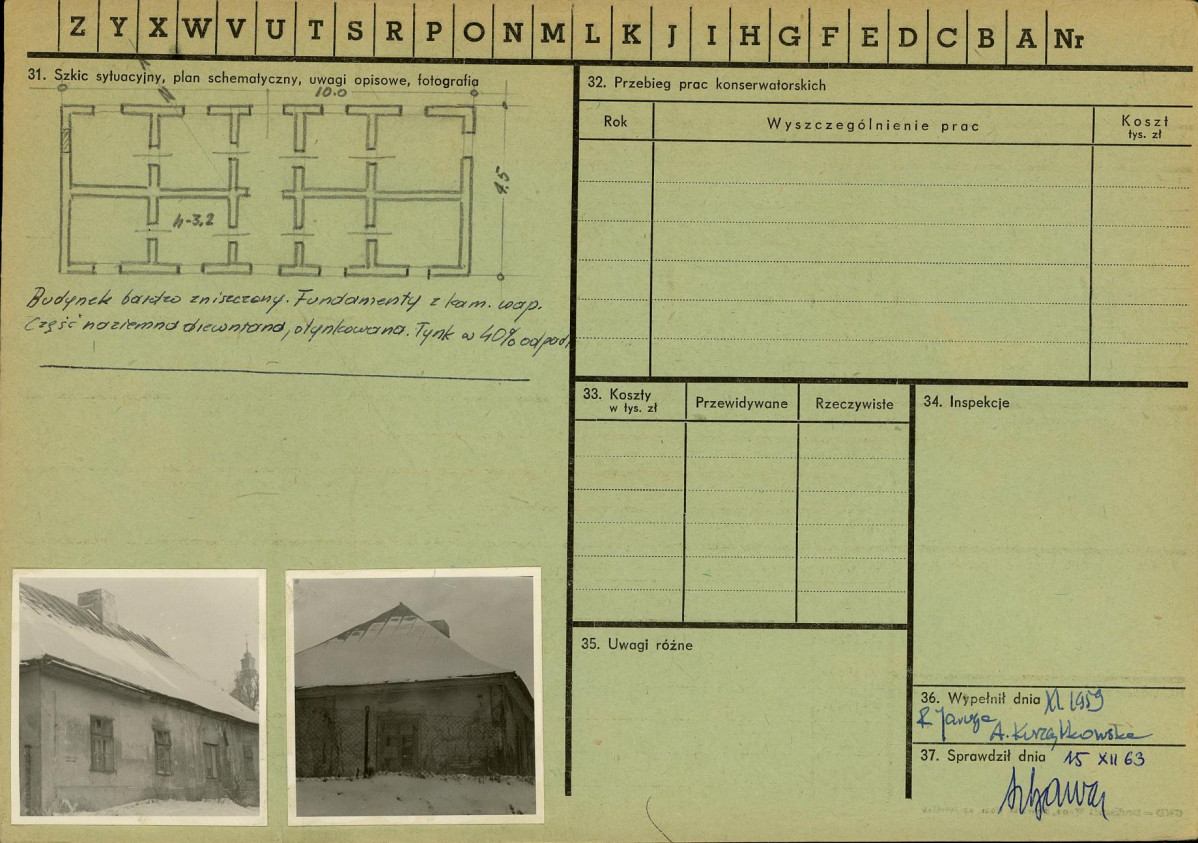 Z Y X W V U T S R P O N M L K J I H G F E D C B A Nr
31. Szkic sytuacyjny, plan schematyczny, uwagi opisowe, fotografia
N
10.0
4.5
h-3,2
Budynek bardzo zniszczony. Fundamenty z kam. wap.
Część naziemna drewniana, otynkowana. Tynk w 40% odpadł.
32. Przebieg prac konserwatorskich
Rok
Wyszczególnienie prac
Koszt
tys. zł
33. Koszty
w tys. zł
Przewidywane
Rzeczywiste
34. Inspekcje
35. Uwagi różne
36. Wypełnił dnia XI 1959
R
A. Kurzątkowska
37. Sprawdził dnia 15 XII 63